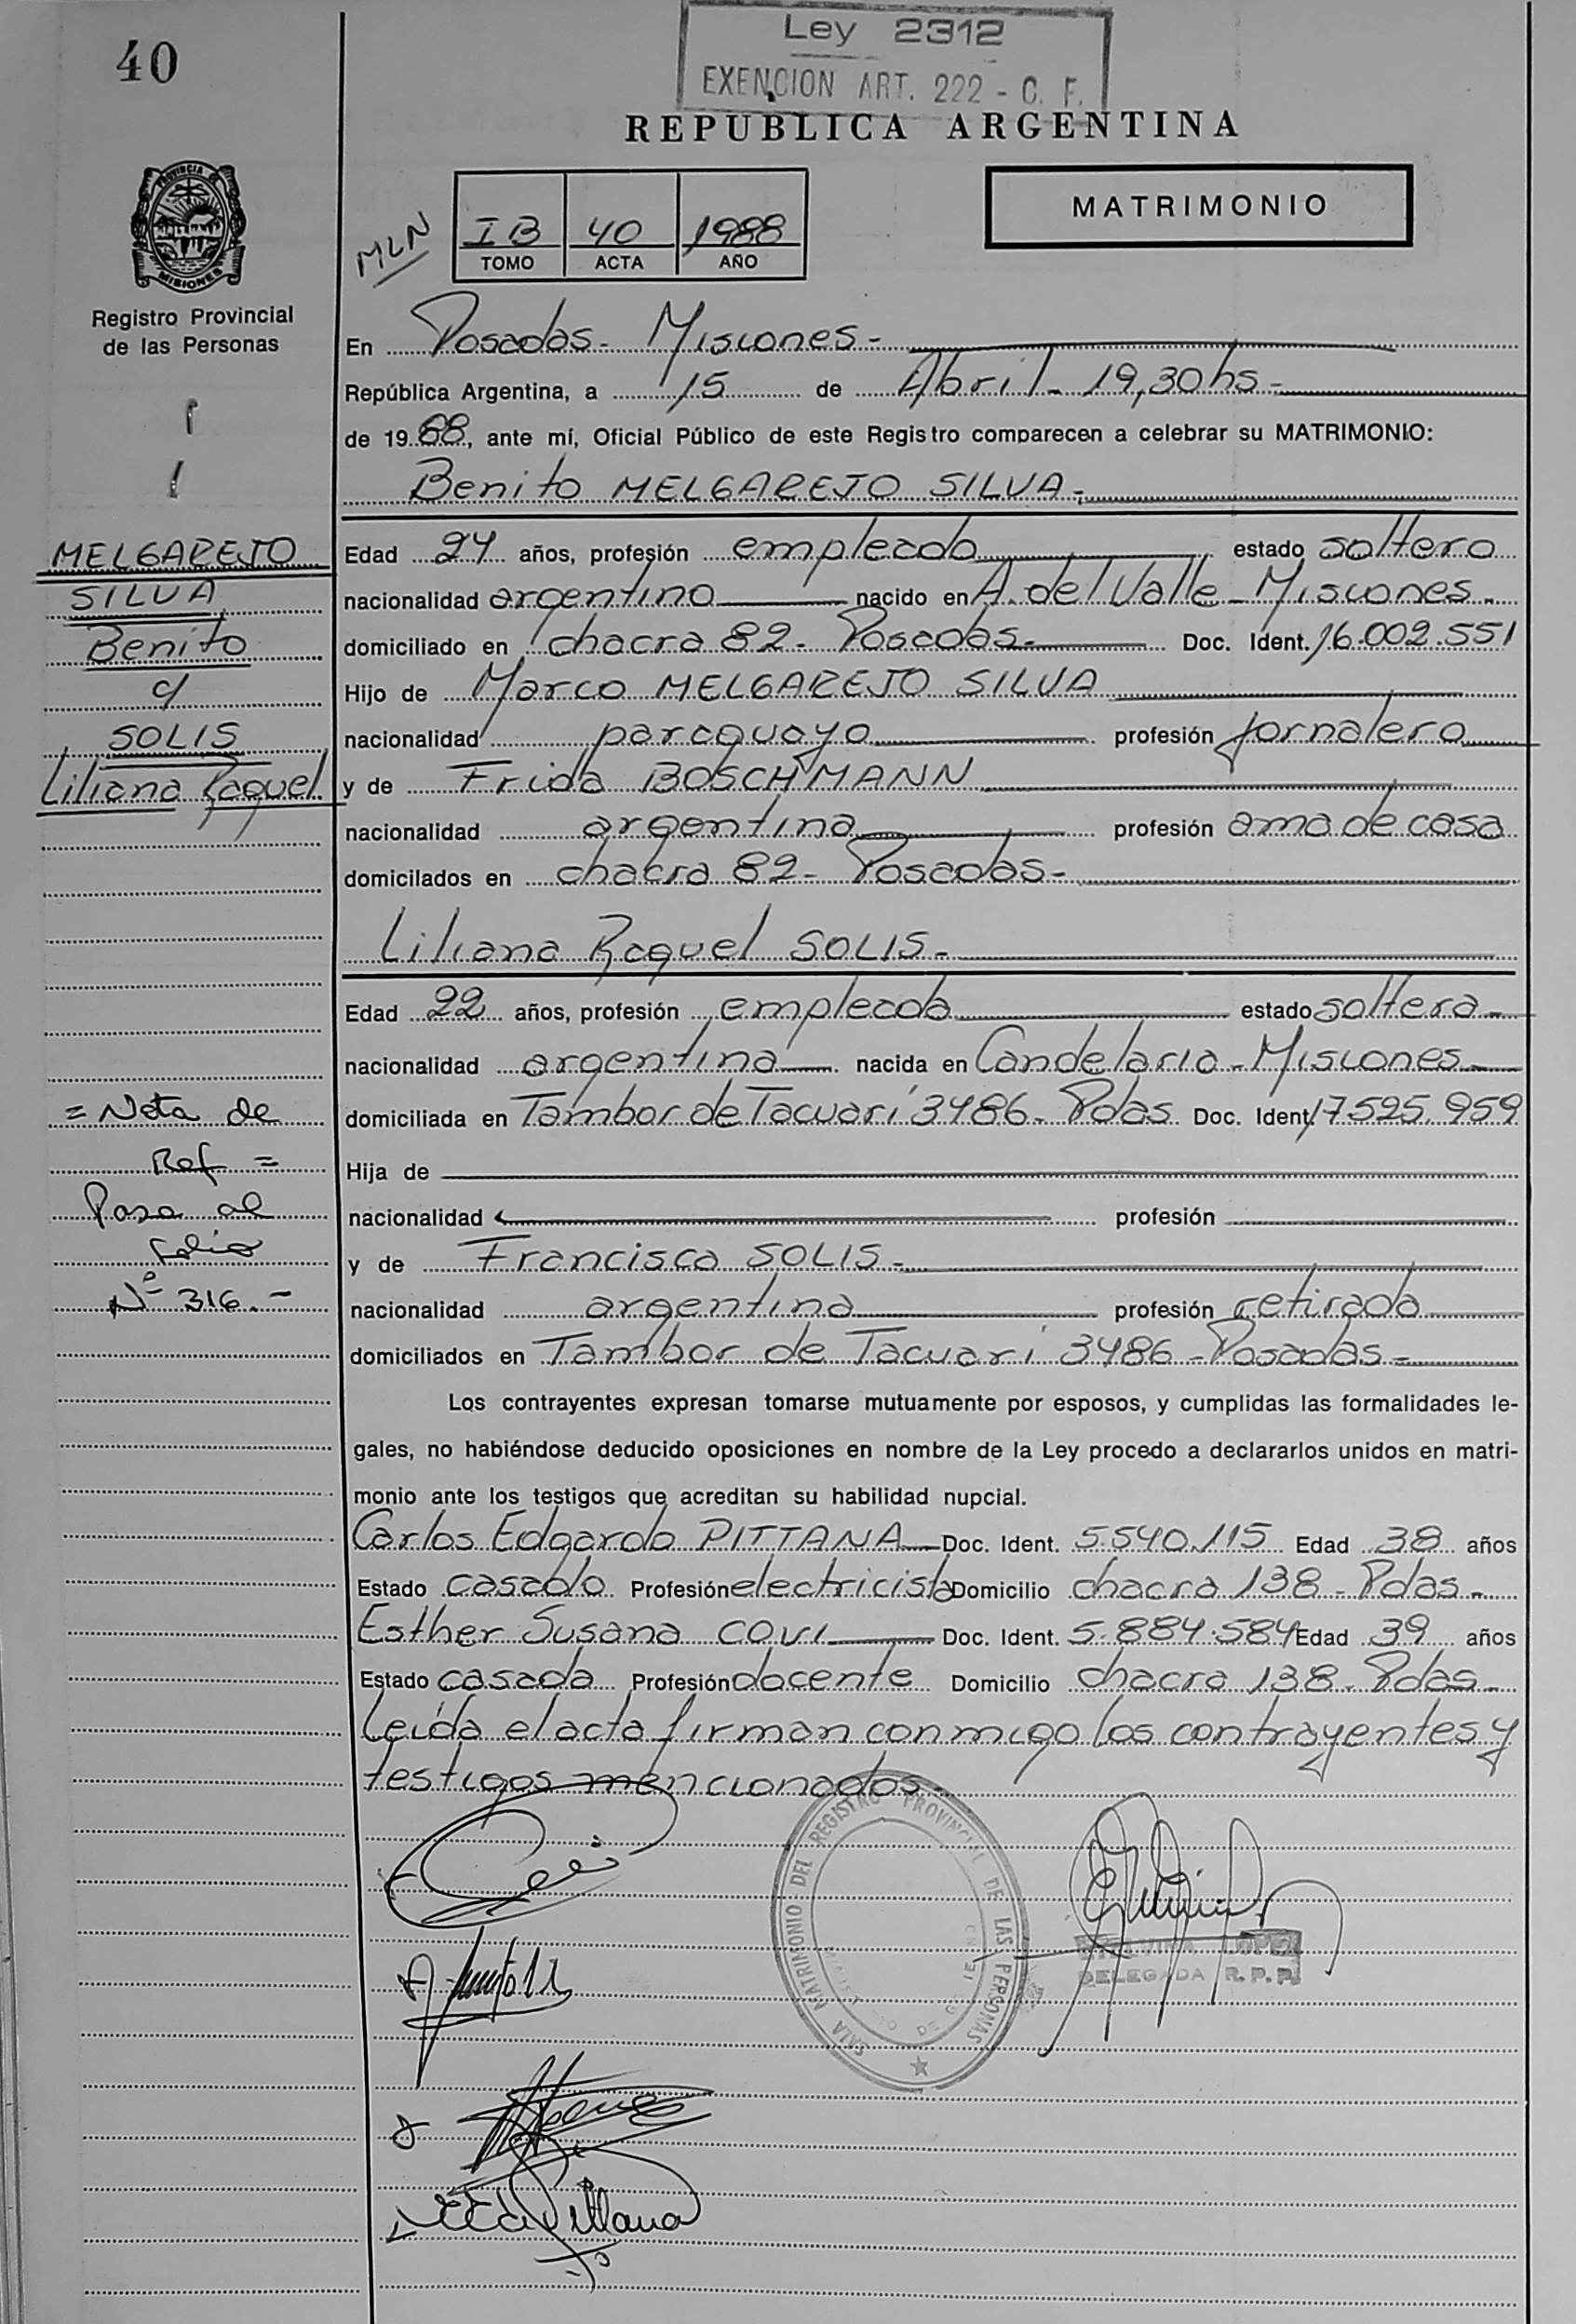 Ley 2312
EXENCION ART. 222 - C. F.
40
REPUBLICA ARGENTINA
PROVINCIA DE
MISIONES
MLN
IB 40 1988
TOMO ACTA AÑO
MATRIMONIO
Registro Provincial
de las Personas
En Posadas- Misiones-
República Argentina, a 15 de Abril- 19,30hs-
de 1988, ante mí, Oficial Público de este Registro comparecen a celebrar su MATRIMONIO:
Benito MELGAREJO SILVA-
MELGAREJO
SILVA
Benito
c/
SOLIS
Liliana Raquel
Edad 24 años, profesión empleado estado soltero
nacionalidad argentino nacido en A. del Valle - Misiones-
domiciliado en chacra 82- Posadas- Doc. Ident. 16.002.551
Hijo de Marco MELGAREJO SILVA
nacionalidad paraguayo profesión jornalero
y de Frida BOSCHMANN
nacionalidad argentina profesión ama de casa
domicilados en chacra 82- Posadas-
Liliana Raquel SOLIS-
Edad 22 años, profesión empleada estado soltera-
nacionalidad argentina nacida en Candelaria - Misiones-
domiciliada en Tambor de Tacuarí 3486- Pdas. Doc. Ident. 17.525.959
Hija de
nacionalidad profesión
y de Francisca SOLIS-
nacionalidad argentina profesión retirada
domiciliados en Tambor de Tacuarí 3486 - Posadas-
= Nota de
Ref =
Pasa al
folio
Nº 316.-
Los contrayentes expresan tomarse mutuamente por esposos, y cumplidas las formalidades le-
gales, no habiéndose deducido oposiciones en nombre de la Ley procedo a declararlos unidos en matri-
monio ante los testigos que acreditan su habilidad nupcial.
Carlos Edgardo PITTANA Doc. Ident. 5.540.115 Edad 38 años
Estado casado Profesión electricista Domicilio chacra 138- Pdas-
Esther Susana COVI Doc. Ident. 5.884.584 Edad 39 años
Estado casada Profesión docente Domicilio chacra 138- Pdas-
Leída el acta firman conmigo los contrayentes y
testigos mencionados-
SALA MATRIMONIO DEL REGISTRO PROVINCIAL DE LAS PERSONAS
LOPEZ
DELEGADA R. P. P.